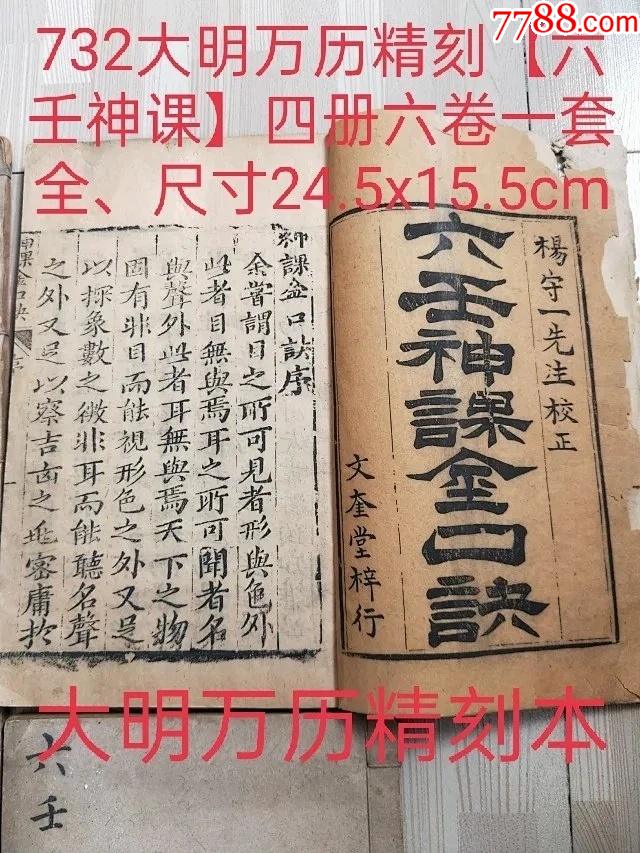 7788.com
732大明万历精刻【六
壬神课】四册六卷一套
全、尺寸24.5x15.5cm
楊守一先生校正
六壬神課金口訣
文奎堂梓行
神課金口訣序
余嘗謂目之所可見者形與色外
此者目無與焉耳之所可聞者名
與聲外此者耳無與焉天下之物
固有非目而能視形色之外又足
以探象數之微非耳而能聽名聲
之外又足以察吉凶之兆審庸於
神課金口訣
大明万历精刻本
六壬